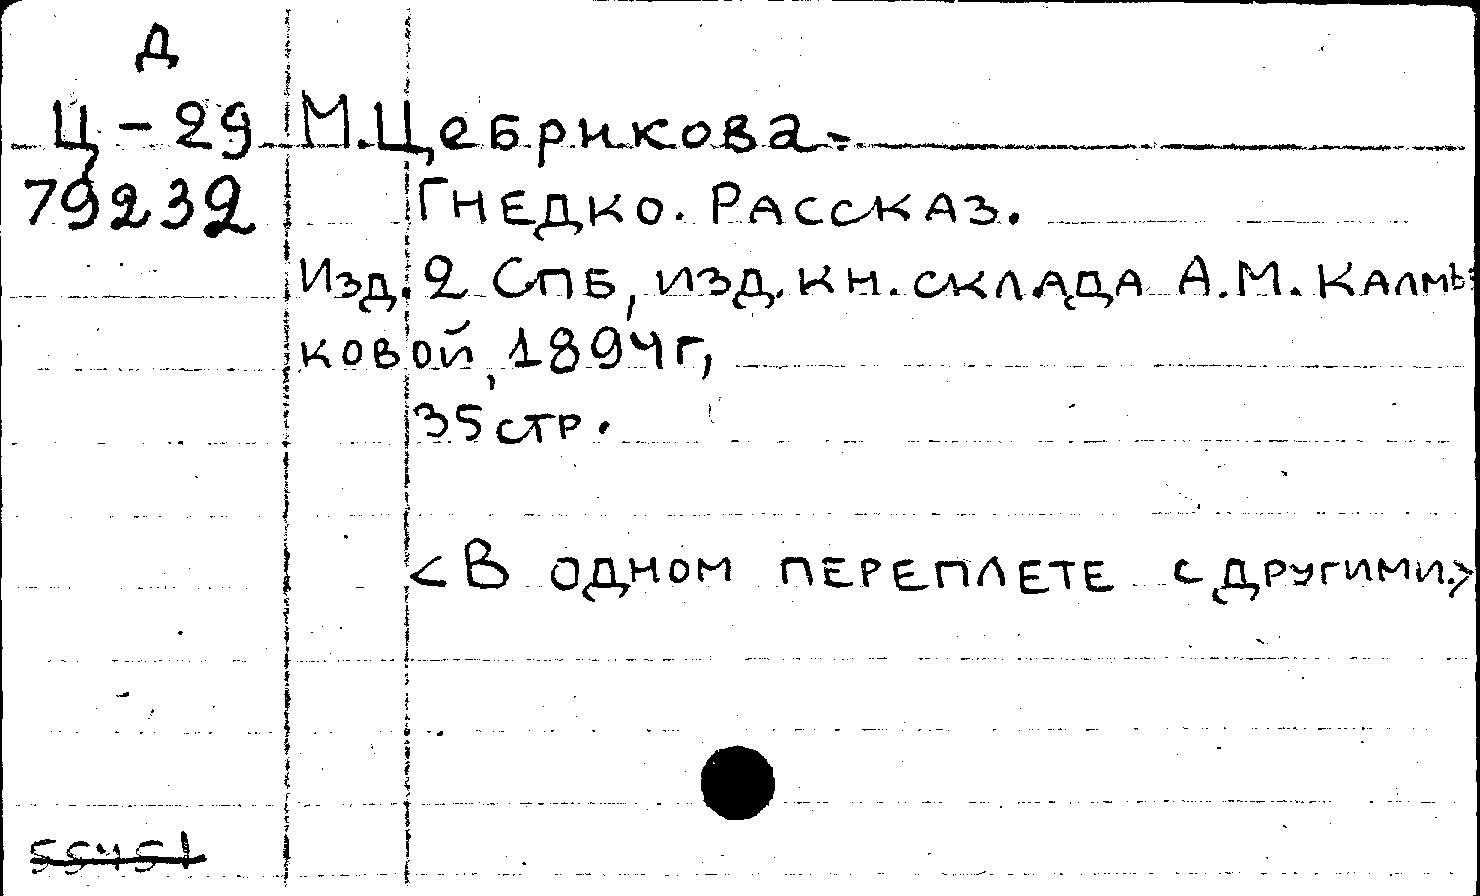 Д
Ц-29 М.Цебрикова-
79232 Гнедко. Рассказ.
Изд. 2 СПБ, изд. кн. склада А.М. Калмы-
ковой, 1894г,
35 стр.
<В одном переплете с другими.>
55451